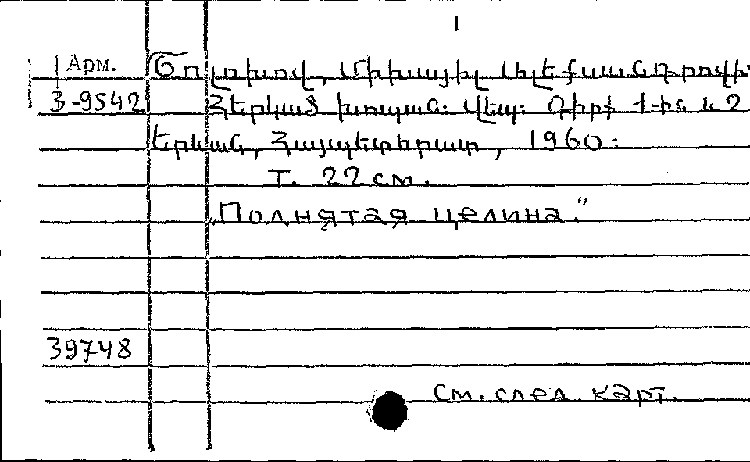 1
Арм. Շոլոխով, Միխայիլ Ալեքսանդրովի
3-9542 Հերկած խոպան: Վեպ: Գիրք 1-ին և 2
Երևան, Հայպետհրատ, 1960:
Т. 22 см.
"Поднятая целина."
39748
См. след. карт.